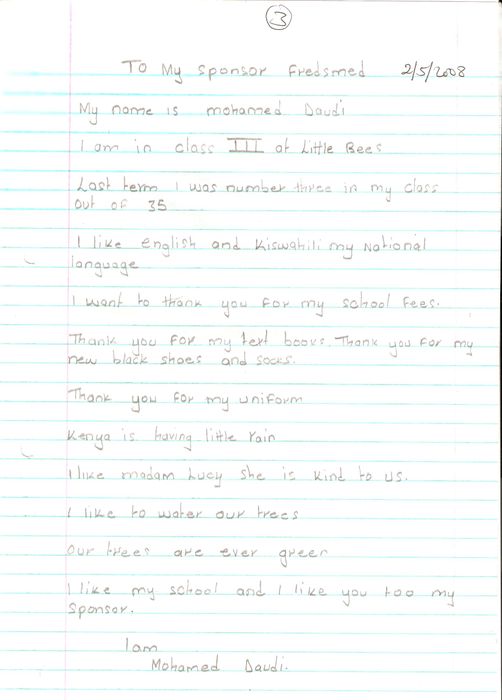 3
To My sponsor Fredsmed 2/5/2008
My name is mohamed Daudi
I am in class III at Little Bees
Last term I was number three in my class
out of 35
I like English and Kiswahili my National
language
I want to thank you for my school fees.
Thank you for my text books. Thank you for my
new black shoes and socks.
Thank you for my uniform
Kenya is having little rain
I like madam Lucy she is kind to us.
I like to water our trees
our trees are ever green
I like my school and I like you too my
sponsor.
I am
Mohamed Daudi.